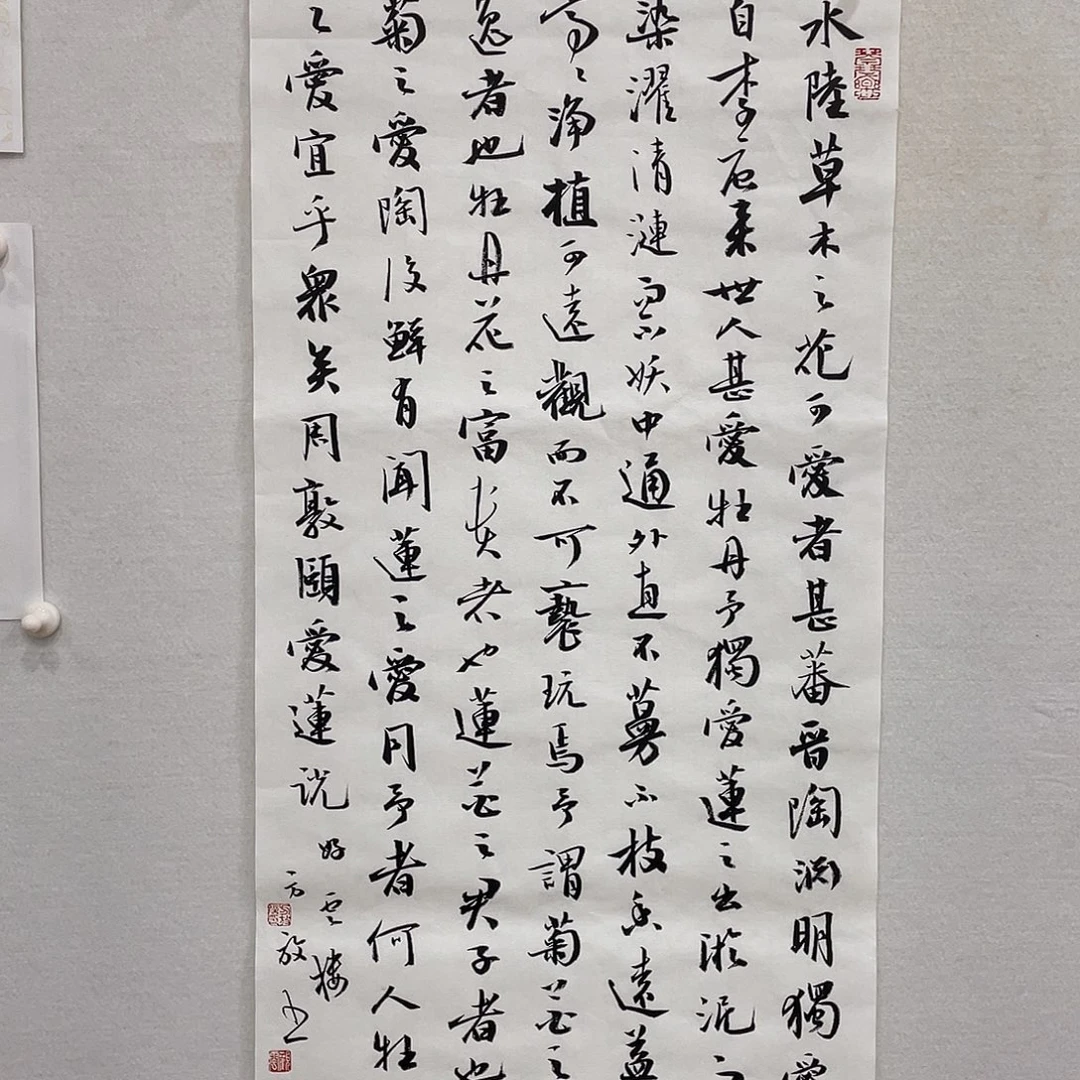 水陸草木之花可愛者甚蕃晉陶淵明獨愛
自李唐来世人甚愛牡丹予獨愛蓮之出淤泥而
染濯清漣而不妖中通外直不蔓不枝香遠益
亭々淨植可遠觀而不可褻玩焉予謂菊花之
逸者也牡丹花之富貴者也蓮花之君子者也
菊之愛陶後鮮有聞蓮之愛同予者何人牡
之愛宜乎眾矣周敦頤愛蓮説
好雲樓
方放書